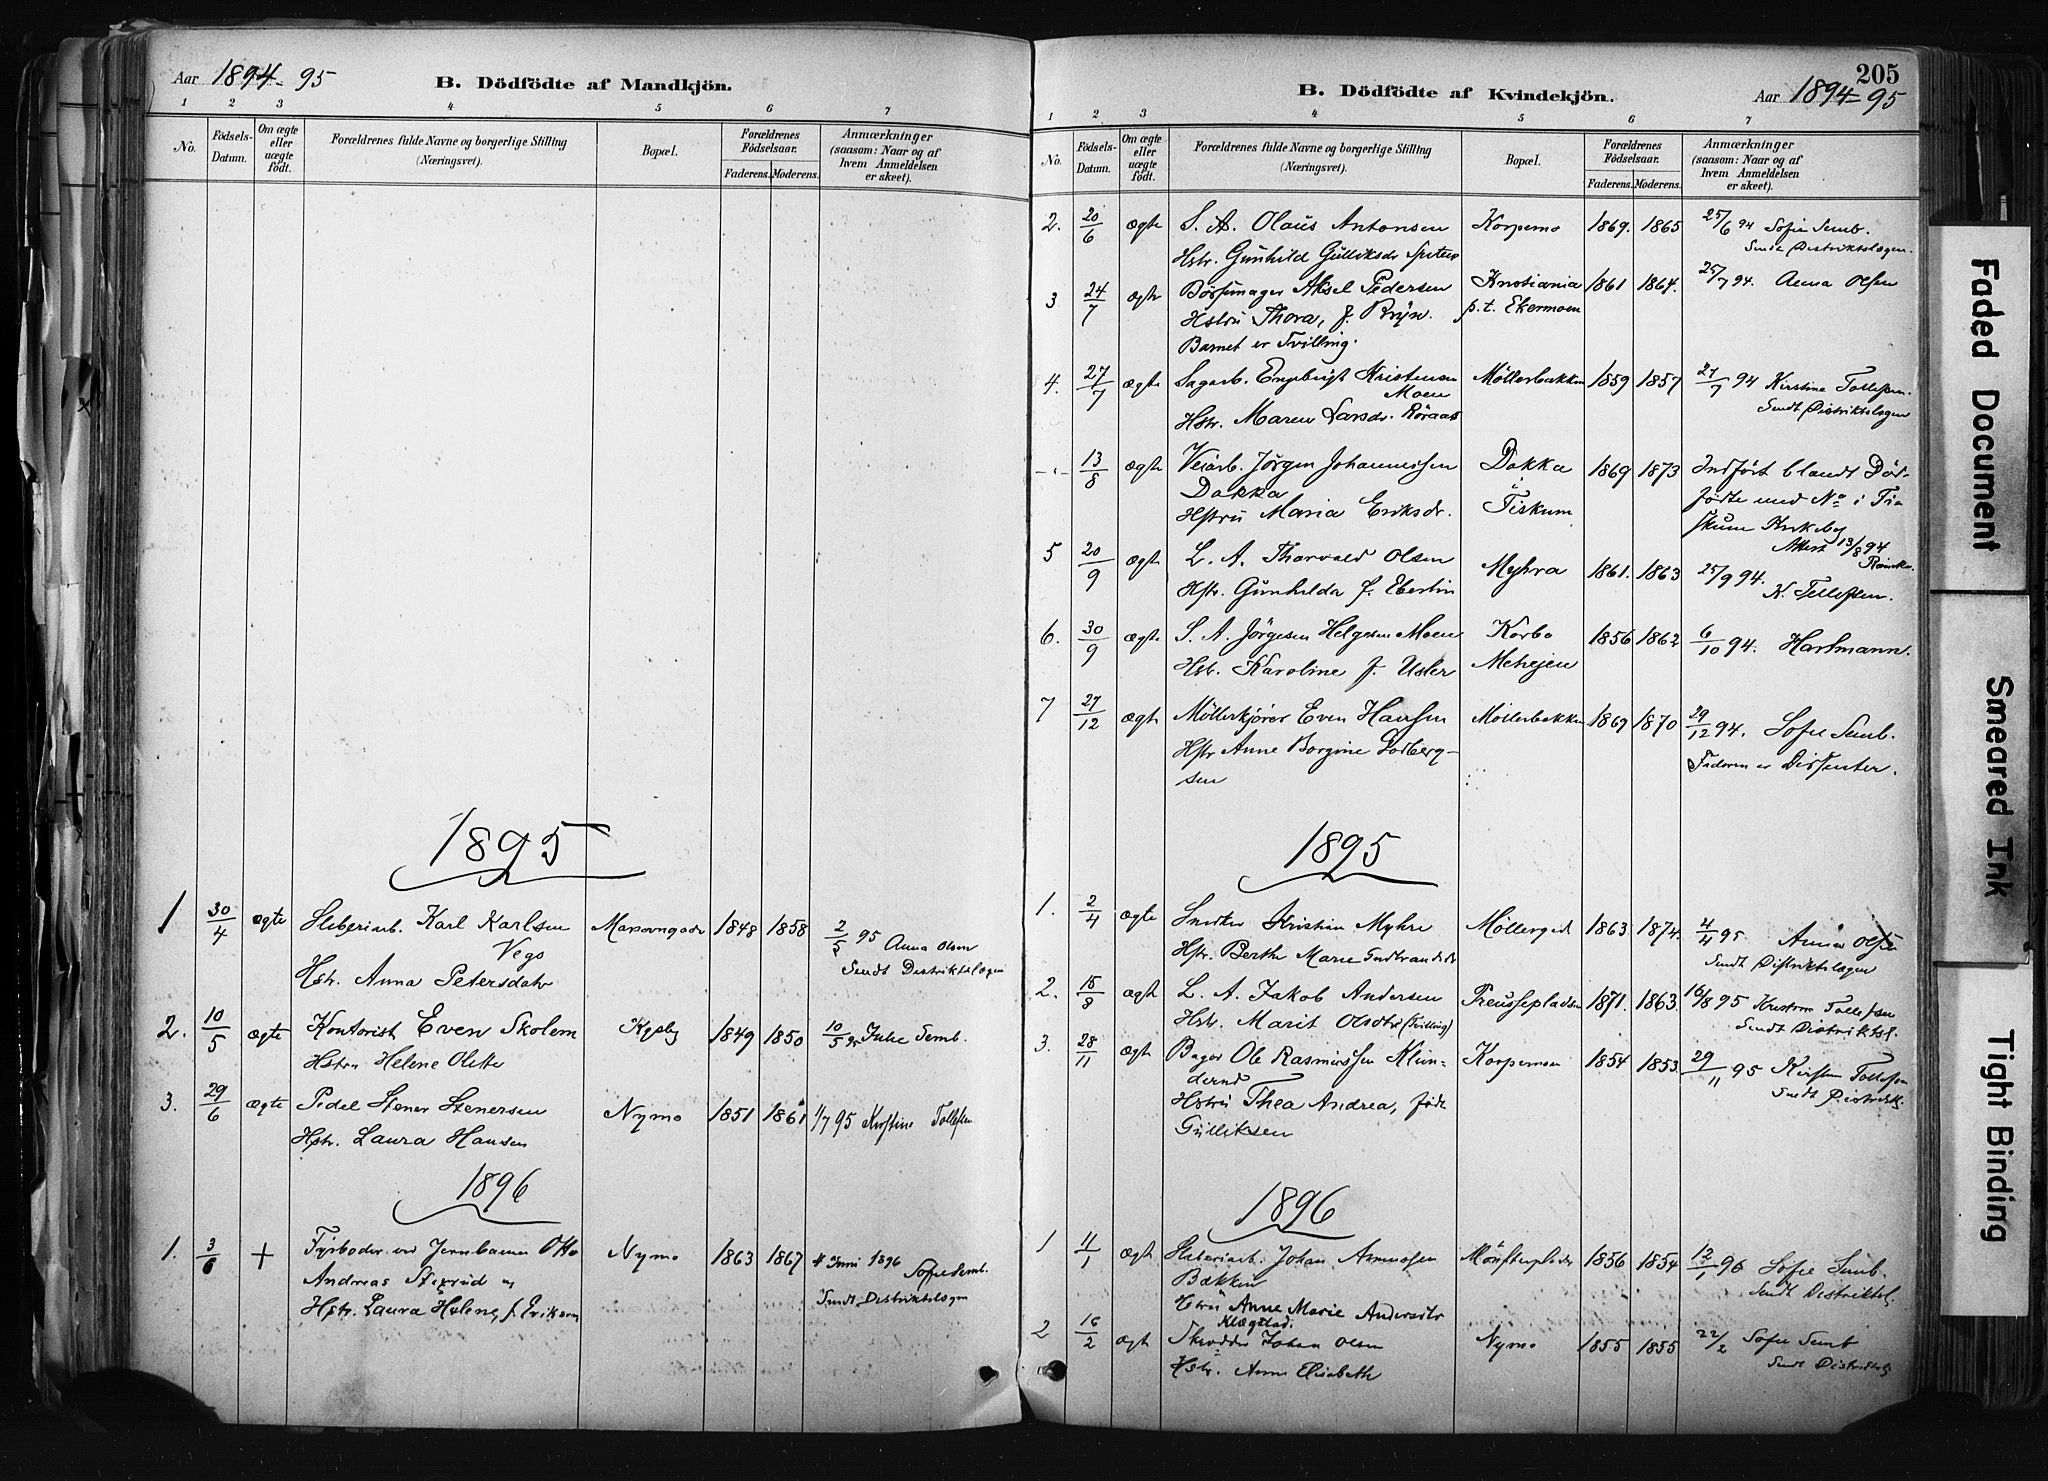 Aar 1894-95
B. Dödfödte af Mandkjön.
1 2 3 4 5 6 7
No.
Födsels-Datum.
Om ægte eller uægte födt.
Forældrenes fulde Navne og borgerlige Stilling (Næringsvei).
Bopæl.
Forældrenes Födselsaar.
Faderens. Moderens.
Anmærkninger (saasom: Naar og af hvem Anmeldelsen er skeet).
1895
1 30/4 ægte Karl Karlsen 1848 1858 2/5 95 Anna Olsen
Vego Sendt Distriktslægen
Hstr. Anna Petersdatr
2. 10/5 ægte Kontorist Even Skolem 1849 1850 10/5 Julie Semb.
Hstru Helene Olette
3. 29/6 ægte Pedel Stener Stenersen Nymo 1851 1861 1/7 95 Kirstine Tollefsen
Hstr. Laura Hansen
1896
1. 3/6 + Fyrböder ved Jernbanen Otto Nymo 1863 1867 4 Juni 1896 Sofie Semb.
Andreas
Hstr. Laura Helene, f. Eriksen Sendt Distriktslægen
205
B. Dödfödte af Kvindekjön.
Aar 1894-95
1 2 3 4 5 6 7
No.
Födsels-Datum.
Om ægte eller uægte födt.
Forældrenes fulde Navne og borgerlige Stilling (Næringsvei).
Bopæl.
Forældrenes Födselsaar.
Faderens. Moderens.
Anmærkninger (saasom: Naar og af hvem Anmeldelsen er skeet).
2. 20/6 ægte S. A. Olaus Antonsen Korpemo 1869. 1865 25/6 94 Sofie Semb.
Hstr. Gunhild Gulliksdr Sendt Distriktslægen.
3 24/7 ægte Börsemager Aksel Pedersen Kristiania 1861 1864. 25/7 94. Anna Olsen
Hstru Thora, f. Bryn. p.t. Ekermoen
Barnet er Tvilling.
4. 27/7 ægte Sagarb. Engebrigt Kristensen Möllerbakken 1859 1857 27/7 94 Kirstine Tollefsen.
Moen Sendt Distriktslægen
Hstr. Maren Larsdr. Röraas
13/8 ægte Veiarb. Jörgen Johannessen Dokka 1869 1873 Indfört blandt Död-
Dokka i födte med No i Fi-
Hstru Maria Eriksdr. Fiskum skum Kirkebog
Attest 13/8 94
5 20/9 ægte L. A. Thorvald Olsen Myhra 1861. 1863 25/9 94.
Hstr. Gunhilda f. Ebertin K. Tollefsen.
6. 30/9 ægte S. A. Jörgen Helgesen Moen Korbo 1856 1862 6/10 94. Hartmann.
Hstr. Karoline f. Usler Mehejen
7 27/12 ægte Möllerkjörer Even Hansen Möllerbakken 1869 1870 29/12 94. Sofie Semb.
Hstr Anne Borgine Faderen er Dissenter.
sen
1895
1. 2/4 ægte Snedker Kristian Myhre Möllergad 1863 1874. 4/4 95 Anna Olsen
Hstr. Berthe Marie Gudbrandsdr Sendt Distriktslægen
2. 15/8 ægte L. A. Jakob Andersen Preussepladsen 1871. 1863. 16/8 95 Kirstine Tollefsen
Hstr. Marit Olsdtr (Tvilling) Sendt Distriktsl.
3. 28/11 ægte Bager Ole Rasmussen Klün- Korpemoen 1854 1853. 29/11 95 Kirstine Tollefsen
derud Sendt Distriktsl.
Hstru Thea Andrea, född
Gulliksen
1896
1 11/1 ægt Johan Asmussen 1856 1854 12/1 96 Sofie Semb.
Bakken Sendt Distriktsl.
Hstru Anne Marie Andersdtr
2 16/2 ægt Johan Olsen Nymo 1855 1855 22/2 Sofie Semb
Hstr. Anne Elisabeth Sendt Distriktslg
Faded Document
Smeared Ink
Tight Binding